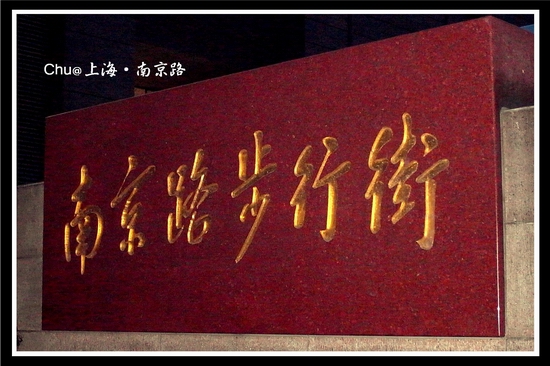 Chu@上海·南京路
南京路步行街